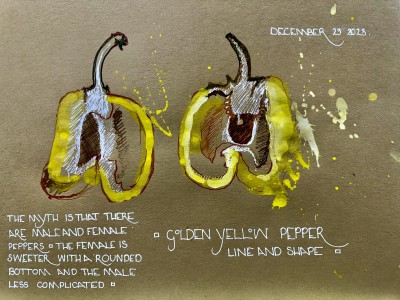 DECEMBER 29 2023
THE MYTH IS THAT THERE
ARE MALE AND FEMALE
PEPPERS THE FEMALE IS
SWEETER WITH A ROUNDED
BOTTOM AND THE MALE
LESS COMPLICATED
GOLDEN YELLOW PEPPER
LINE AND SHAPE